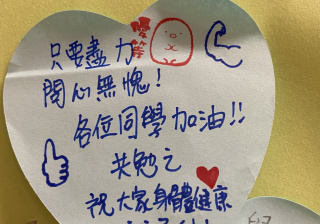 只要盡力
問心無愧！
各位同學加油!!
共勉之
祝大家身體健康